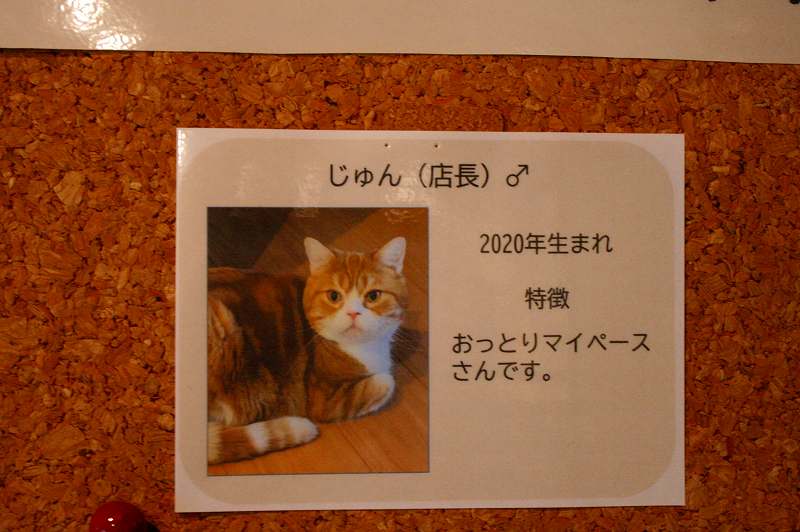 じゅん（店長）♂
2020年生まれ
特徴
おっとりマイペース
さんです。